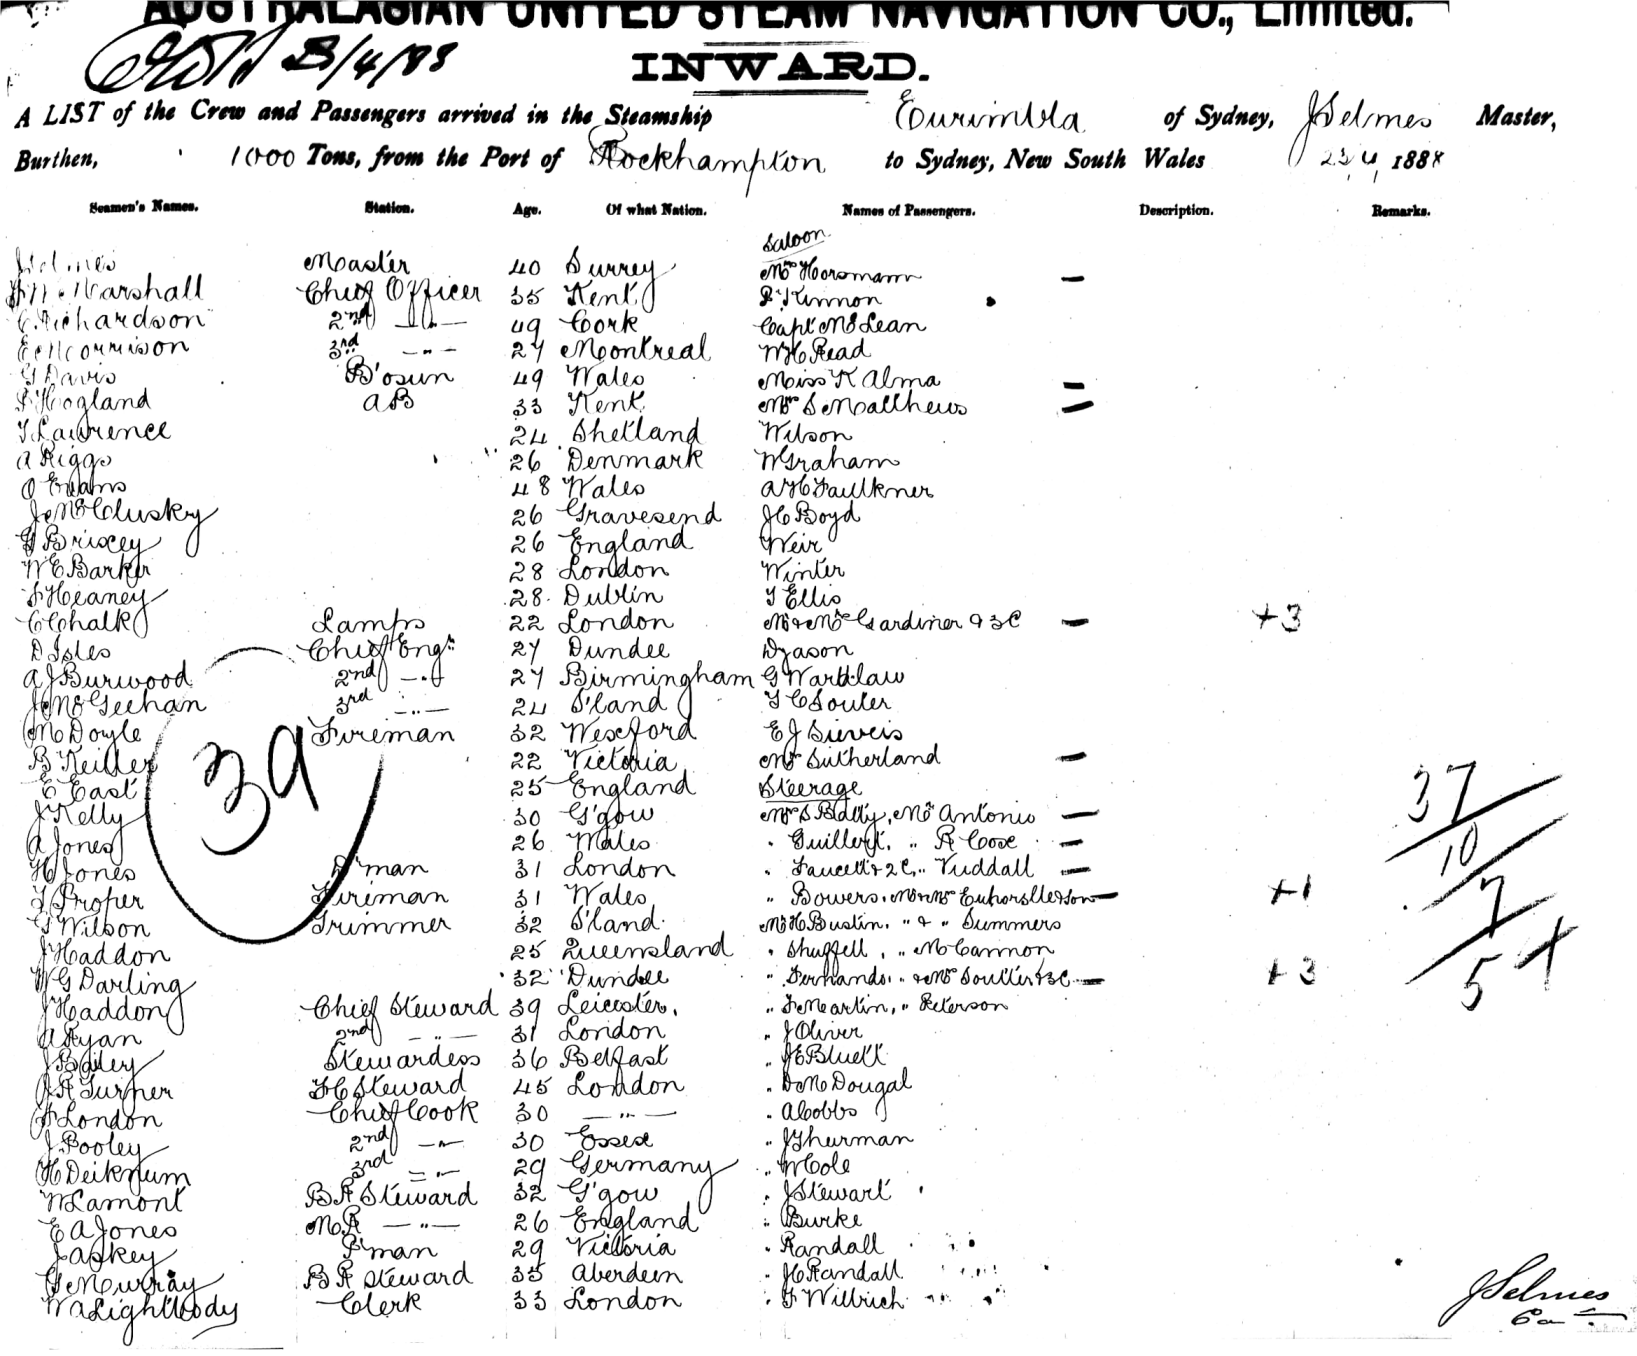 AUSTRALASIAN UNITED STEAM NAVIGATION CO., Limited.
INWARD.
A LIST of the Crew and Passengers arrived in the Steamship Eurimbla of Sydney, J Selmes Master,
Burthen, 1000 Tons, from the Port of Rockhampton to Sydney, New South Wales 23/4/1888
Seamen's Names. Station. Age. Of what Nation. Names of Passengers. Description. Remarks.
Saloon
J Selmes Master 40 Surrey Mrs Horsmann —
Marshall Chief Officer 35 Kent Kinnon
C Richardson 2nd —"— 49 Cork Capt McLean
Morrison 3rd —"— 27 Montreal W H Read
G Davis B'osun 49 Wales Miss K Alma —
Hogland AB 33 Kent Mrs S Matthews —
T Lawrence 24 Shetland Wilson
A Riggs 26 Denmark W Graham
O Evans 48 Wales A H Faulkner
J McClusky 26 Gravesend J C Boyd
G Brixey 26 England Weir
W E Barker 28 London Winter
Heaney 28 Dublin T Ellis
C Chalk Lamps 22 London Mr & Mrs Gardiner & 3C — +3
D Isles Chief Engr 27 Dundee Dyason
A J Burwood 2nd —"— 27 Birmingham G Wardlaw
J McGeehan 3rd —"— 24 S'land T C Souter
M Doyle Fireman 32 Wexford E J Sieveis
B Keiller 22 Victoria Mrs Sutherland —
E East 25 England Steerage
J Kelly 30 G'gow Mrs S Batty, Mrs Antonio —
A Jones 26 Wales " Guillert, " R Cox —
H Jones D'man 31 London " Faucett & 2C, " Tuddall —
T Proper Fireman 31 Wales " Bowers, Mr & Mrs & son — +1
G Wilson Trimmer 32 S'land Mr H Bustin, " & " Summers
J Haddon 25 Queensland " Shuffell, " McCannon
W G Darling 32 Dundee " Fernands, " & Mrs Soutter & 3C — +3
J Haddon Chief Steward 39 Leicester, " F Martin, " Peterson
A Ryan 2nd —"— 31 London " J Oliver
J Bailey Stewardess 36 Belfast " J E Bluett
A R Turner F C Steward 45 London " D McDougal
F London Chief Cook 30 —"— " A Cobbs
J Pooley 2nd —"— 30 Essex " J Thurman
H Deiknum 3rd —"— 29 Germany " W Cole
W Lamont B R Steward 32 G'gow " J Stewart
E A Jones M R —"— 26 England " Burke
J Askey P'man 29 Victoria " Randall
G Murray B R Steward 35 Aberdeen " J C Randall
W A Lightbody Clerk 33 London " F Wilbrich
39
37
10
7
54
J Selmes